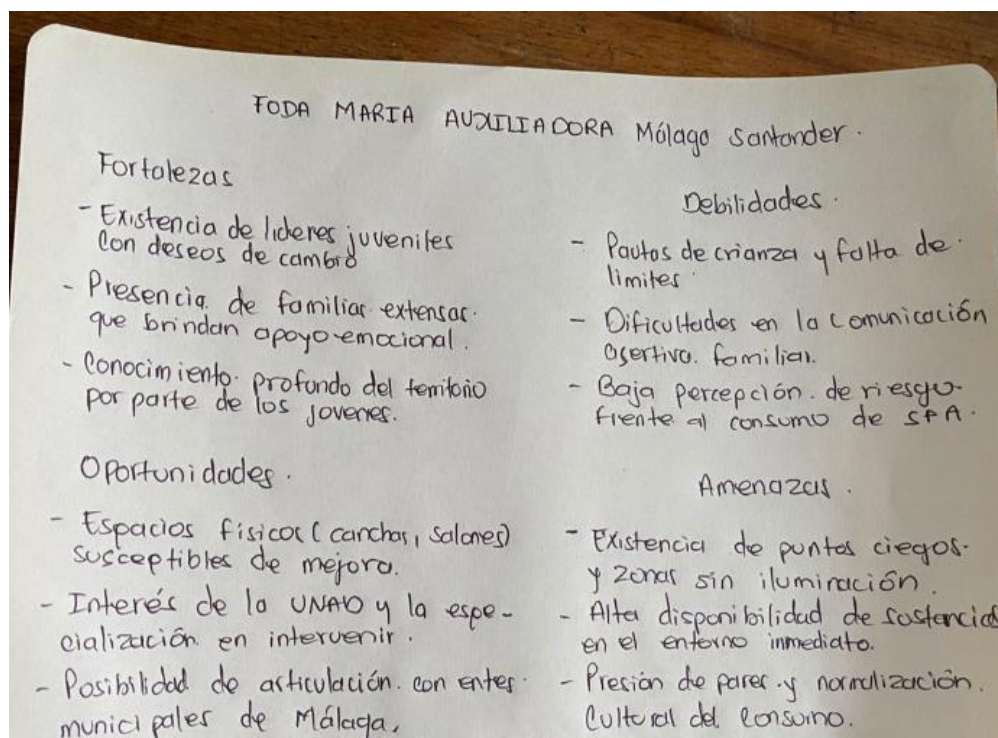 FODA MARIA AUXILIADORA Málaga Santander.
Fortalezas
- Existencia de lideres juveniles
con deseos de cambio
- Presencia de familias extensas.
que brindan apoyo emocional.
- Conocimiento profundo del territorio
por parte de los jovenes.
Oportunidades.
- Espacios físicos (canchas, salones)
susceptibles de mejora.
- Interés de la UNAD y la espe-
cialización en intervenir.
- Posibilidad de articulación con entes
municipales de Málaga.
Debilidades.
- Pautas de crianza y falta de
limites.
- Dificultades en la comunicación
asertiva familiar.
- Baja percepción de riesgo
frente al consumo de SPA.
Amenazas.
- Existencia de puntos ciegos
y zonas sin iluminación.
- Alta disponibilidad de sustancias
en el entorno inmediato.
- Presión de pares y normalización
Cultural del consumo.